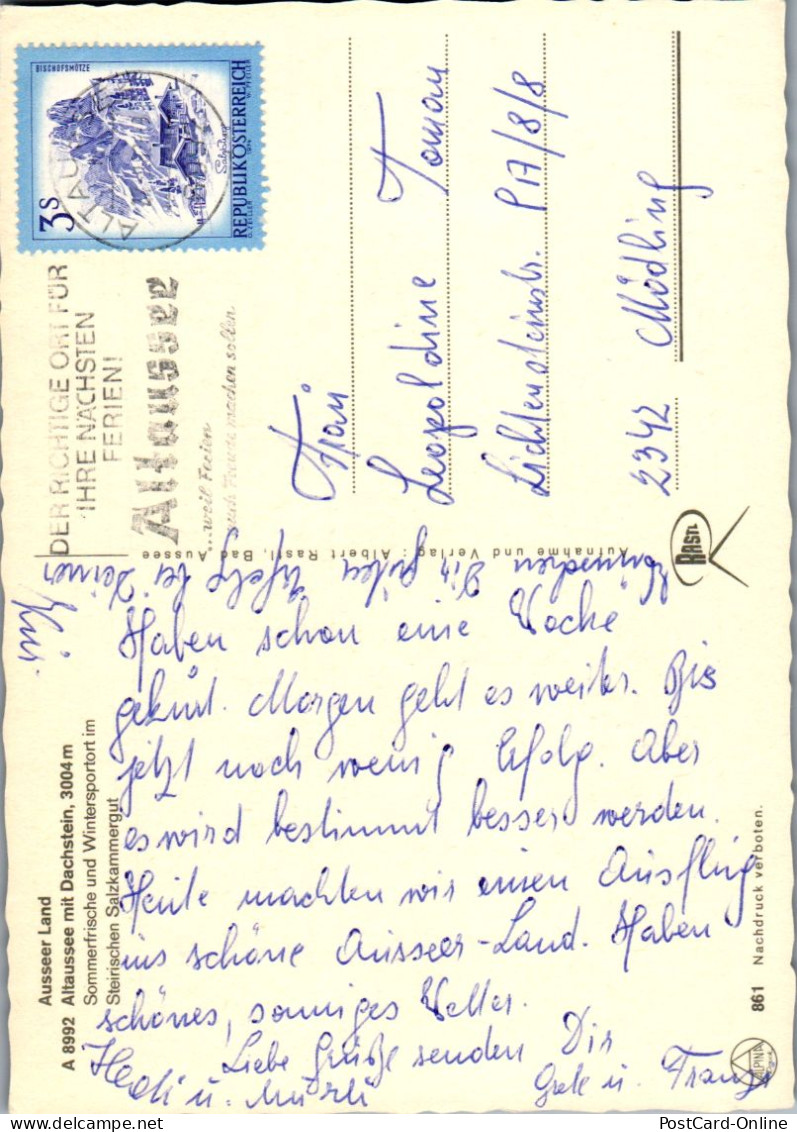 BISCHOFSMÜTZE
3 S
REPUBLIK ÖSTERREICH
ALTAUSSEE
DER RICHTIGE ORT FÜR
IHRE NÄCHSTEN
FERIEN!
Altaussee
...weil Ferien
auch Freude machen sollen
Frau
Leopoldine Toman
Lichtensteinstr. P17/8/8
2342 Mödling
Ausseer Land
A 8992 Altaussee mit Dachstein, 3004 m
Sommerfrische und Wintersportort im
Steirischen Salzkammergut
Aufnahme und Verlag: Albert Rastl, Bad Aussee
RASTL
Haben schon eine Woche
gekurt. Morgen geht es weiter. Bis
jetzt noch wenig Erfolg. Aber
es wird bestimmt besser werden.
Heute machten wir einen Ausflug
ins schöne Ausseer-Land. Haben
schönes, sonniges Wetter.
Liebe Grüße senden Dir
Hedi u. Murli
Grete u. Franz
wünschen Dir guten Erfolg bei Deiner
Kur
861 Nachdruck verboten.
ALPINA
PostCard-Online